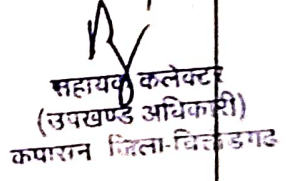 सहायक कलेक्टर
(उपखण्ड अधिकारी)
कपासन जिला-चित्तौडगढ